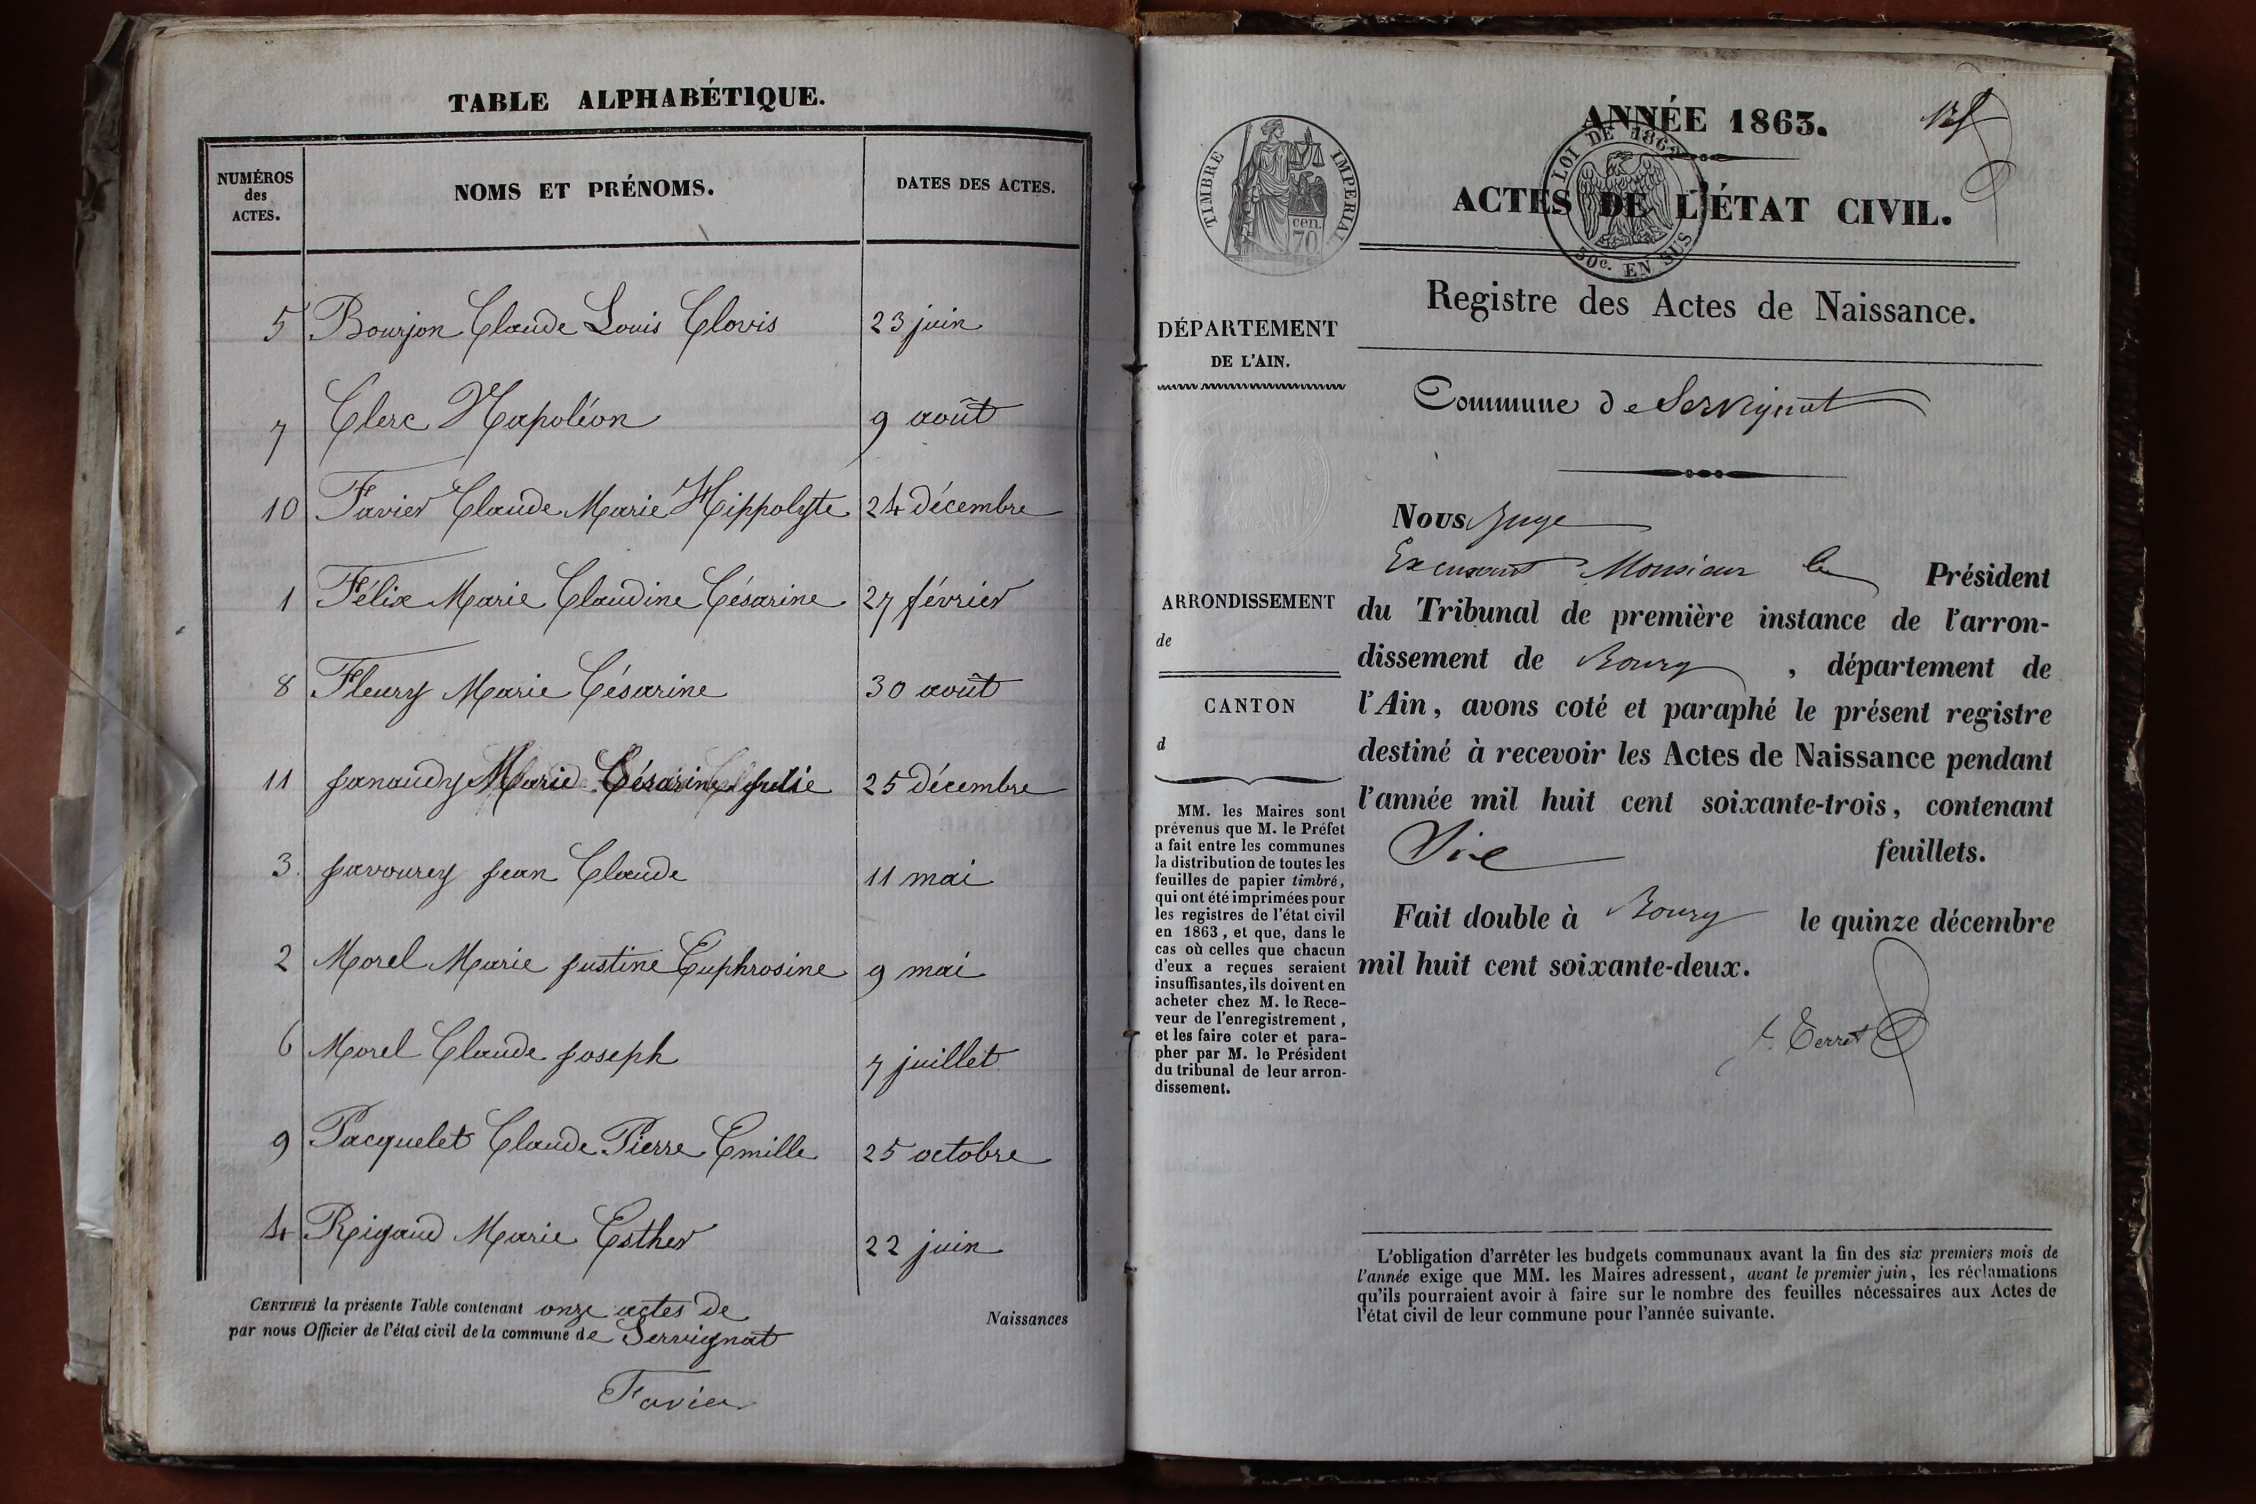 TABLE ALPHABÉTIQUE.
NUMÉROS des ACTES. NOMS ET PRÉNOMS. DATES DES ACTES.
5 Bourjon Claude Louis Clovis 23 juin
7 Clerc Napoléon 9 août
10 Favier Claude Marie Hippolyte 24 décembre
1 Félix Marie Claudine Césarine 27 février
8 Fleury Marie Césarine 30 août
11 Janaudy Marie Césarine Julie 25 décembre
3 Javourey Jean Claude 11 mai
2 Morel Marie Justine Euphrosine 9 mai
6 Morel Claude Joseph 7 juillet
9 Pacquelet Claude Pierre Emille 25 octobre
4 Rigaud Marie Esther 22 juin
CERTIFIÉ la présente Table contenant onze actes de Naissances
par nous Officier de l'état civil de la commune de Servignat
Favier
TIMBRE IMPERIAL
70 cen.
LOI DE 1862
50c. EN SUS
ANNÉE 1863.
ACTES DE L'ÉTAT CIVIL.
Registre des Actes de Naissance.
DÉPARTEMENT
DE L'AIN.
ARRONDISSEMENT
de
CANTON
d
MM. les Maires sont
prévenus que M. le Préfet
a fait entre les communes
la distribution de toutes les
feuilles de papier timbré,
qui ont été imprimées pour
les registres de l'état civil
en 1863, et que, dans le
cas où celles que chacun
d'eux a reçues seraient
insuffisantes, ils doivent en
acheter chez M. le Rece-
veur de l'enregistrement,
et les faire coter et para-
pher par M. le Président
du tribunal de leur arron-
dissement.
Commune de Servignat
Nous Juge
Excusant Monsieur le Président
du Tribunal de première instance de l'arron-
dissement de Bourg, département de
l'Ain, avons coté et paraphé le présent registre
destiné à recevoir les Actes de Naissance pendant
l'année mil huit cent soixante-trois, contenant
Six feuillets.
Fait double à Bourg le quinze décembre
mil huit cent soixante-deux.
Terret
L'obligation d'arrêter les budgets communaux avant la fin des six premiers mois de
l'année exige que MM. les Maires adressent, avant le premier juin, les réclamations
qu'ils pourraient avoir à faire sur le nombre des feuilles nécessaires aux Actes de
l'état civil de leur commune pour l'année suivante.